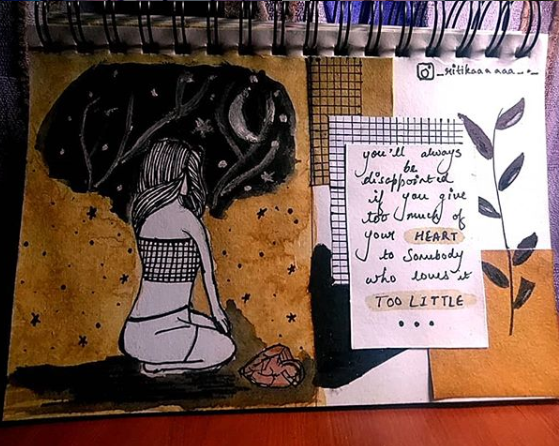 _nitikaanaaa_•_
you'll always
be
disappointed
if you give
too much of
your HEART
to Somebody
who loves it
TOO LITTLE
•••